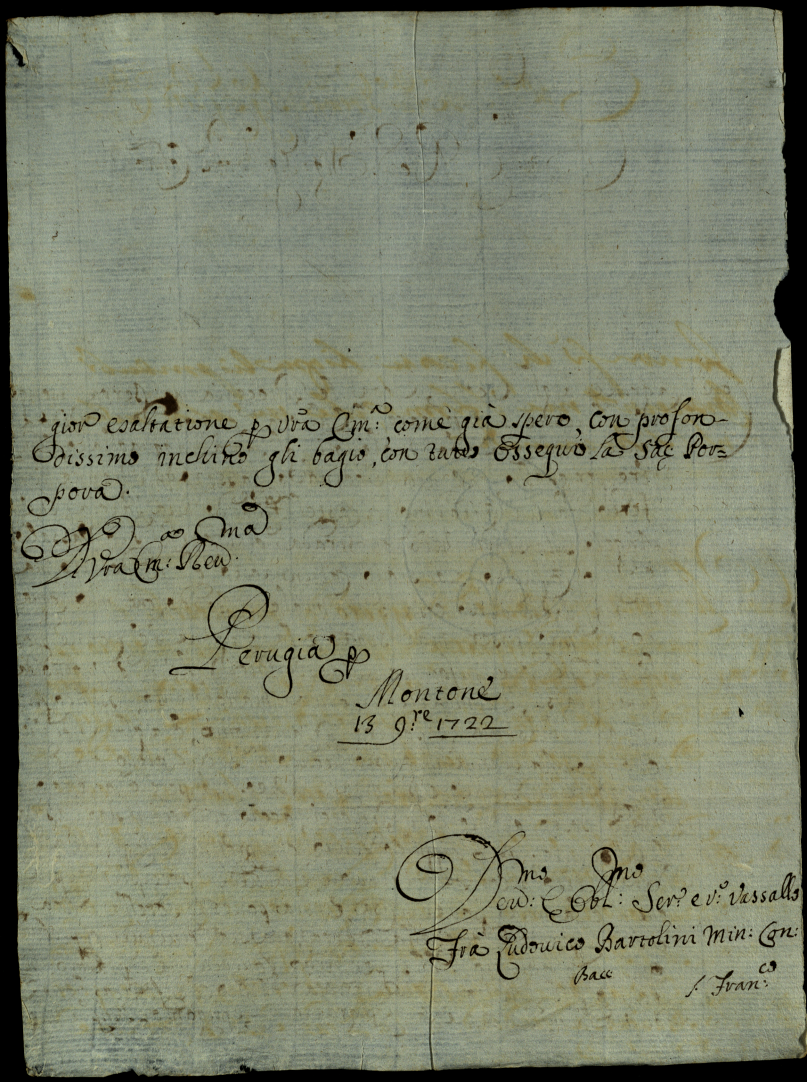 gior esaltatione p vra Em.ª come già spero, con profon-
dissimo inchino gli bagio, con tutto Ossequio la Sac. Por=
pora.
D vra Em: Reu ma
Perugia p
Montone
13 9.re 1722
Deu:mo e Obl:mo Ser.e e v.o Vassallo
Frà Ludouico Bartolini Min: Con:
Bacc
s. Fran:co